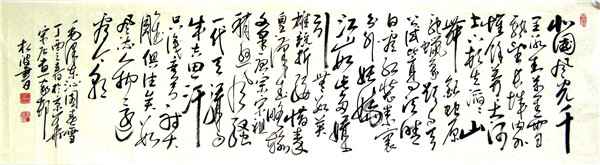 北国风光千
里冰封万里雪
飘望长城内外
惟余莽莽大河
上下顿失滔滔山
舞银蛇原
驰蜡象欲与天
公试比高须晴
日看红装素裹
分外妖娆
江山如此多娇
引无数英
雄竞折腰惜秦
皇汉武略输
文采唐宗宋祖
稍逊风骚
一代天骄
成吉思汗
只识弯弓射大
雕俱往矣数
风流人物还
看今朝
毛泽东沁园春雪
丁酉春月於京